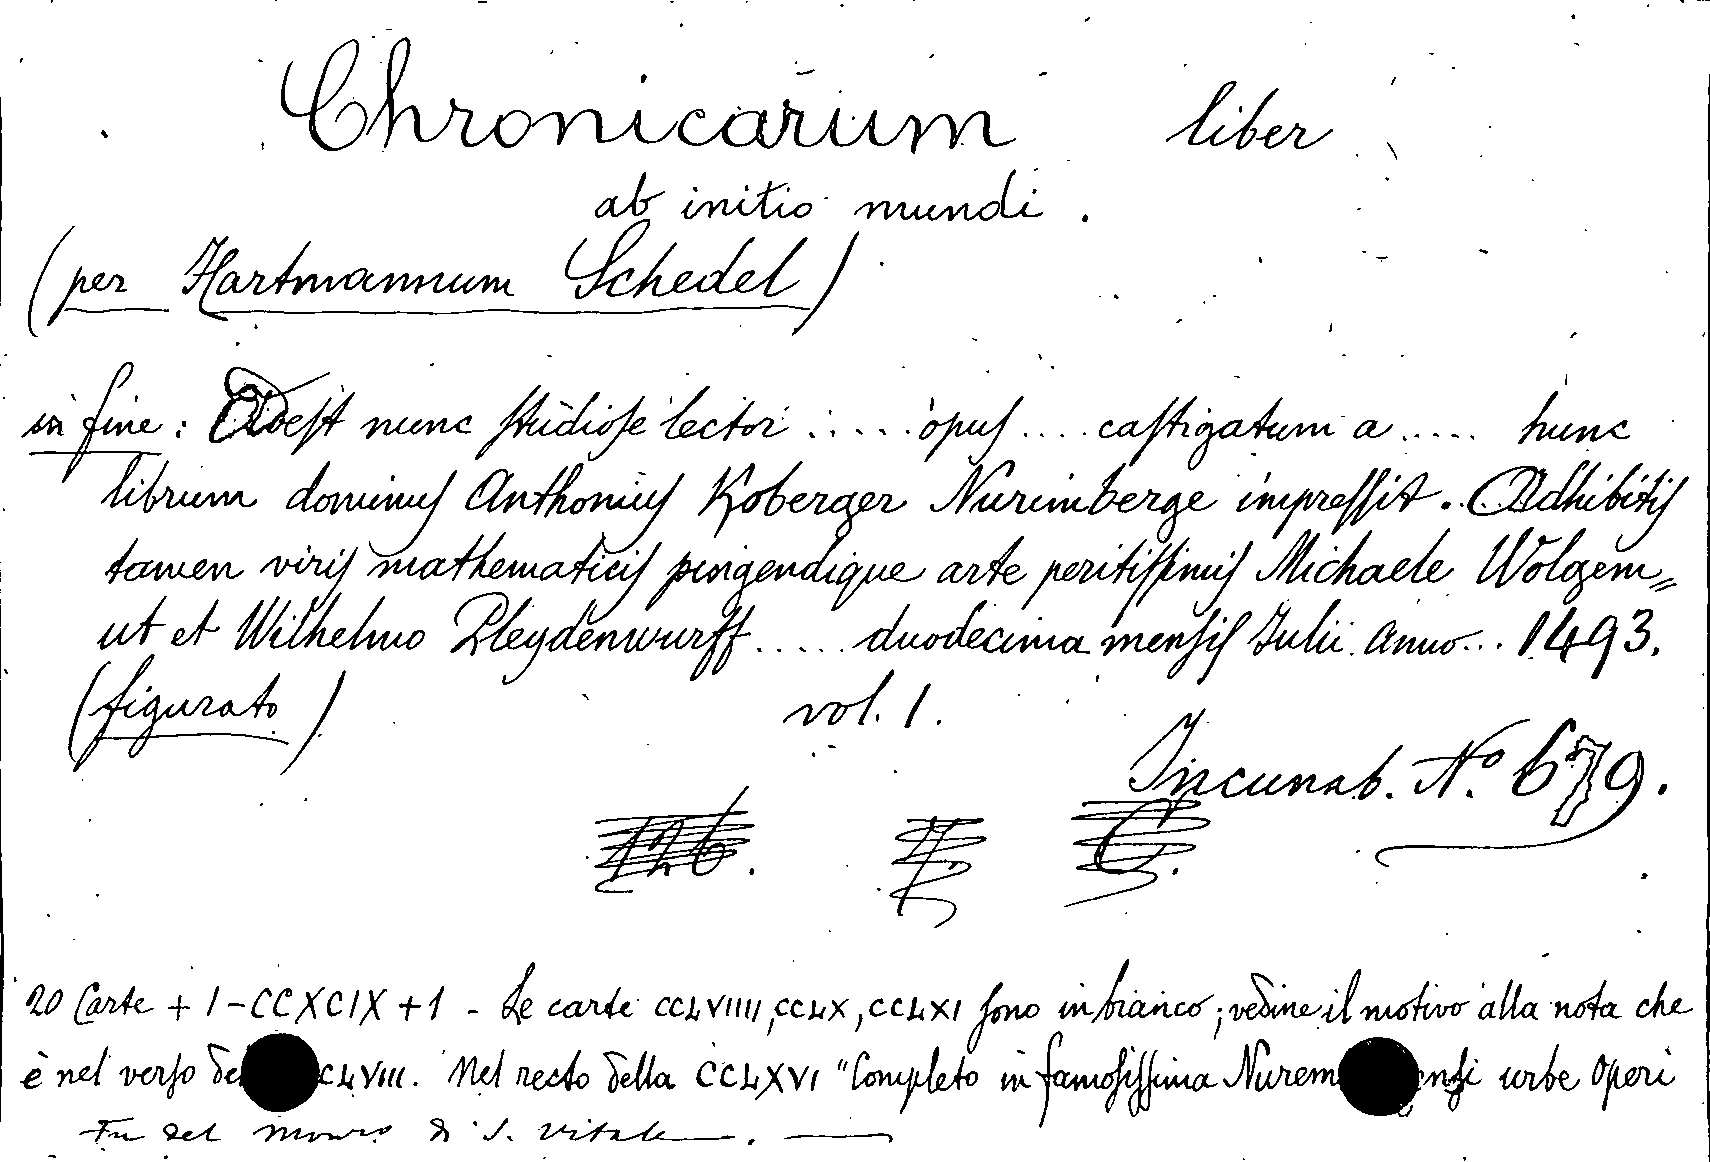 Chronicarum liber
ab initio mundi.
(per Hartmannum Schedel)
in fine: Adest nunc studiose lector ..... opus .... castigatum a ..... hunc
librum dominus Anthonius Koberger Nurimberge impressit. Adhibitis
tamen viris mathematicis pingendique arte peritissimis Michaele Wolgem=
ut et Wilhelmo Pleydenwurff ..... duodecima mensis Julii. Anno... 1493.
(figurato) vol. 1.
Incunab. Nº 679.
126. 7. C.
20 Carte + 1-CCXCIX + 1 - Le carte CCLVIIII, CCLX, CCLXI sono in bianco; vedine il motivo alla nota che
è nel verso de CLVIII. Nel recto della CCLXVI "Completo in famosissima Nurem ensi urbe operi
Fu del Monro di S. Vitale.